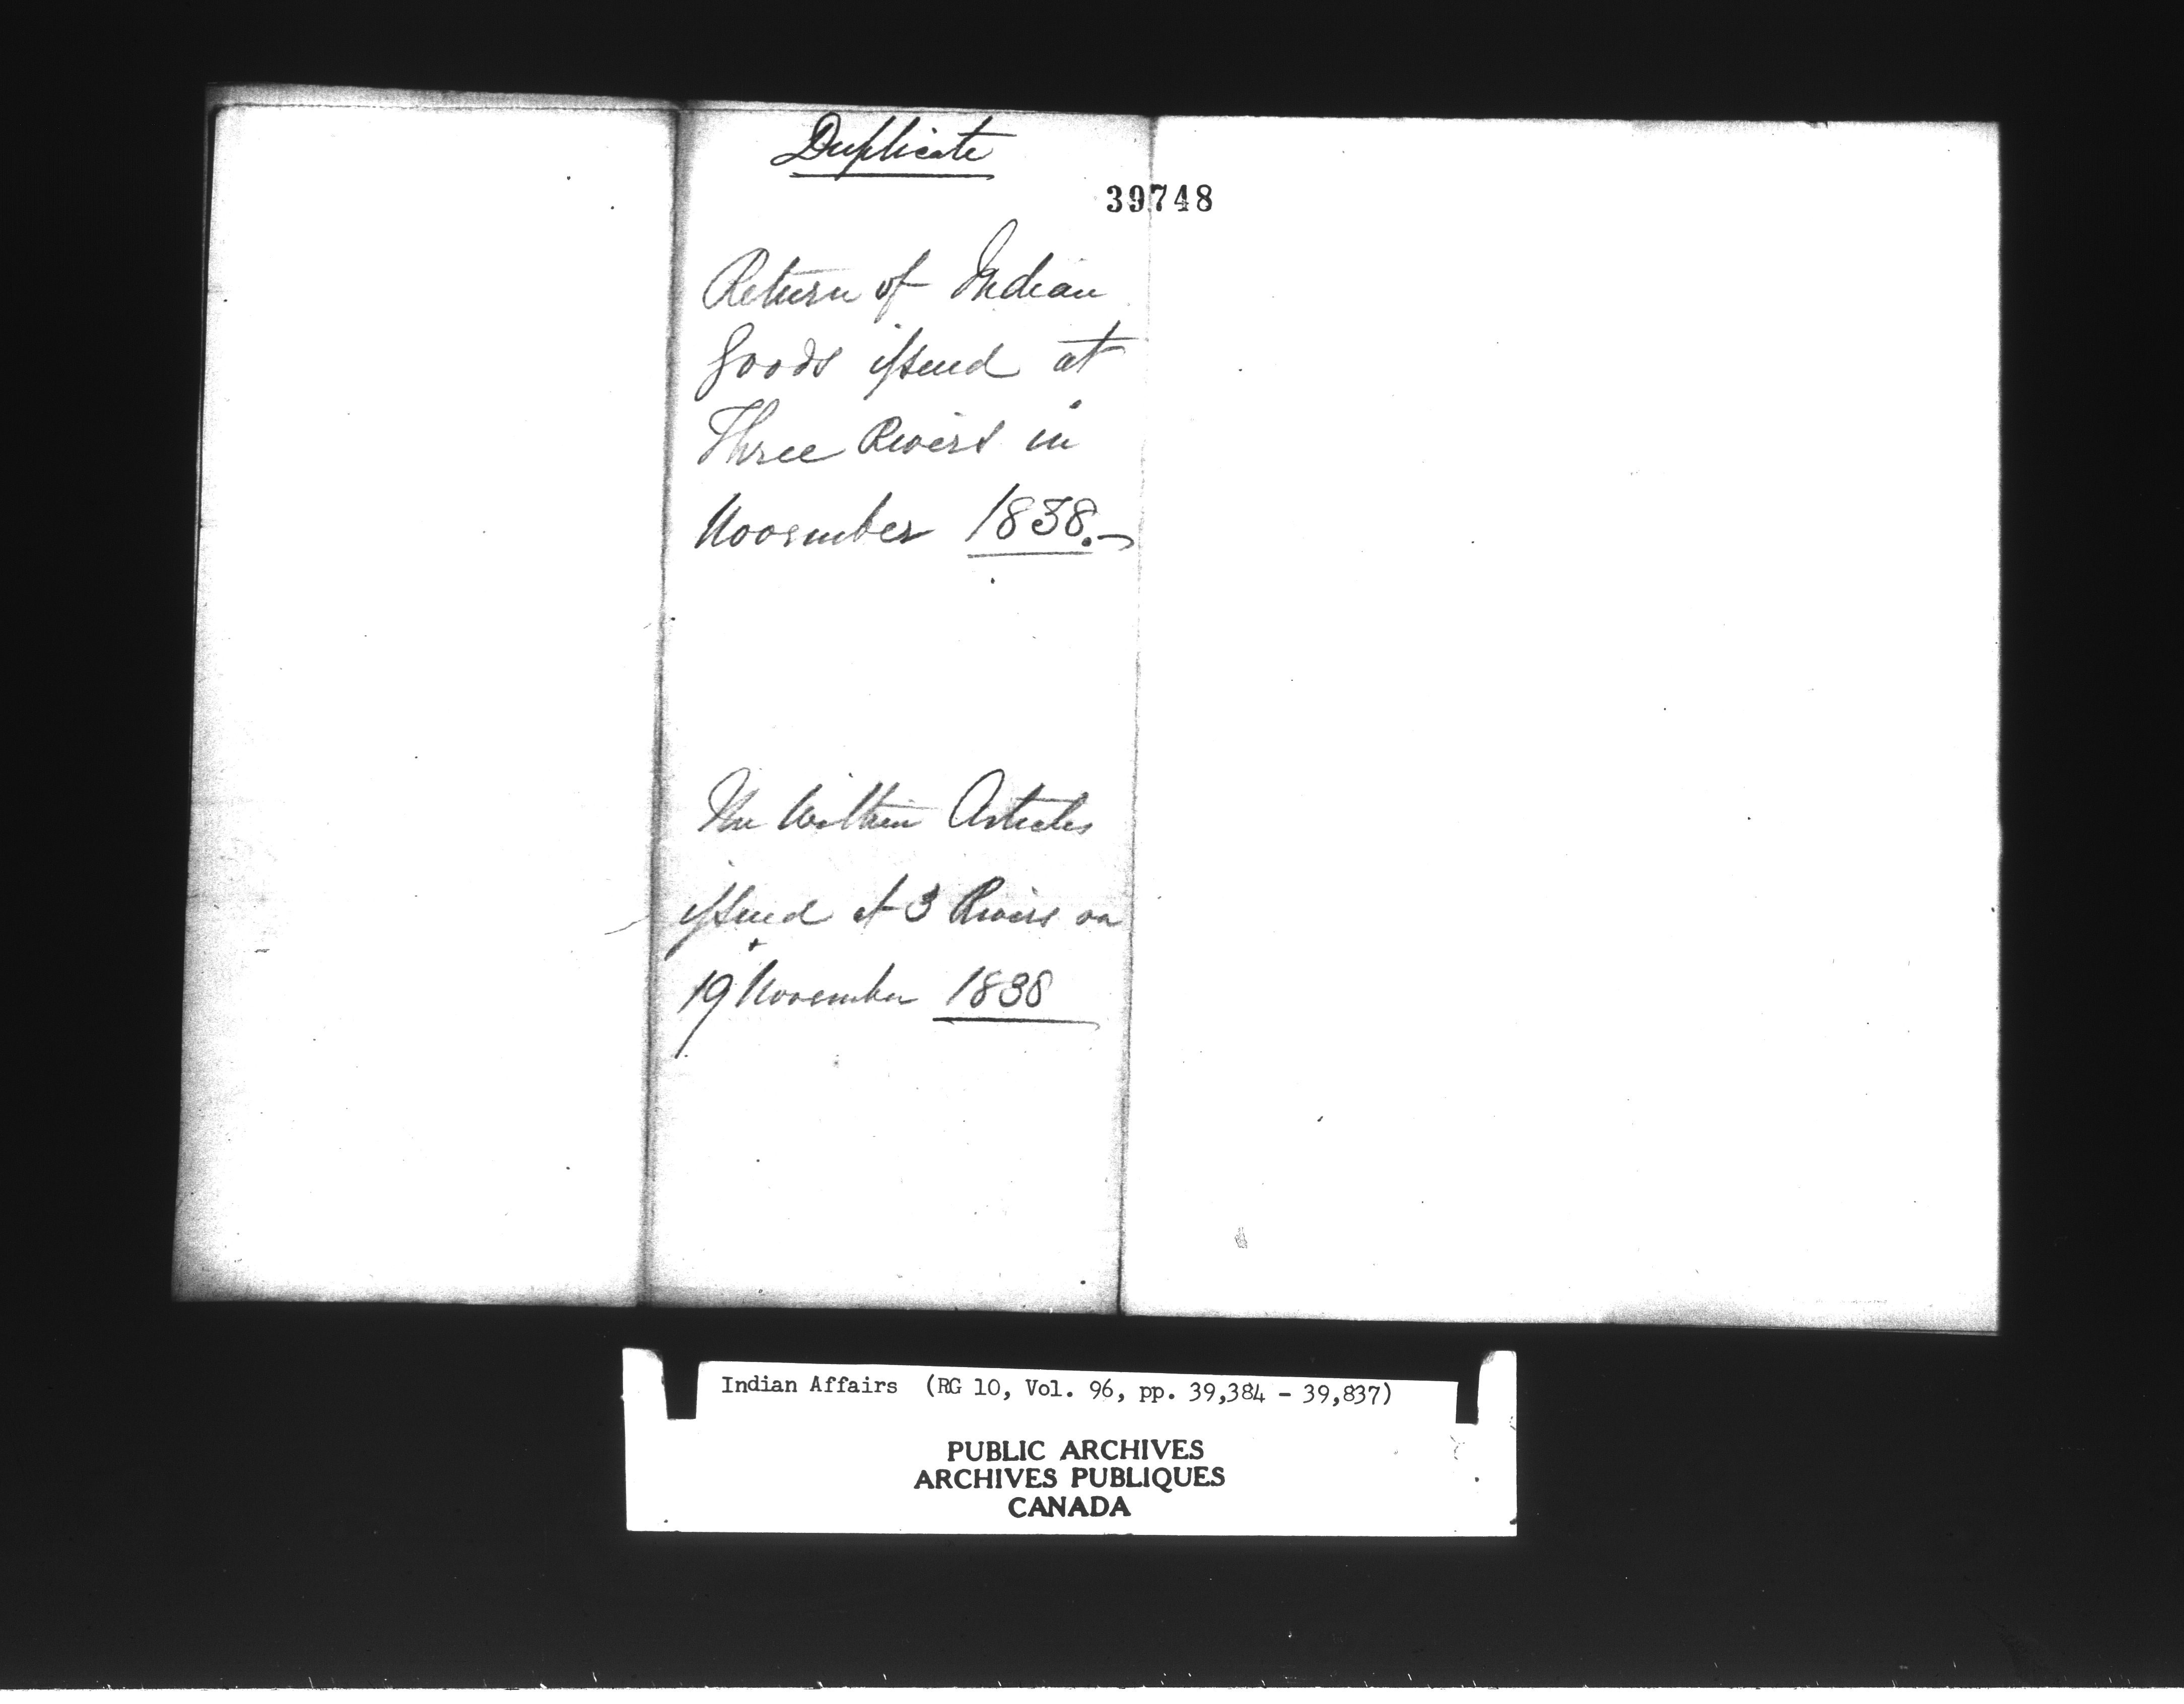 Duplicate
39748
Return of Indian
Goods issued at
Three Rivers in
November 1838.
The Within Articles
issued at 3 Rivers on
19 November 1838
Indian Affairs (RG 10, Vol. 96, pp. 39,384 - 39,837)
PUBLIC ARCHIVES
ARCHIVES PUBLIQUES
CANADA